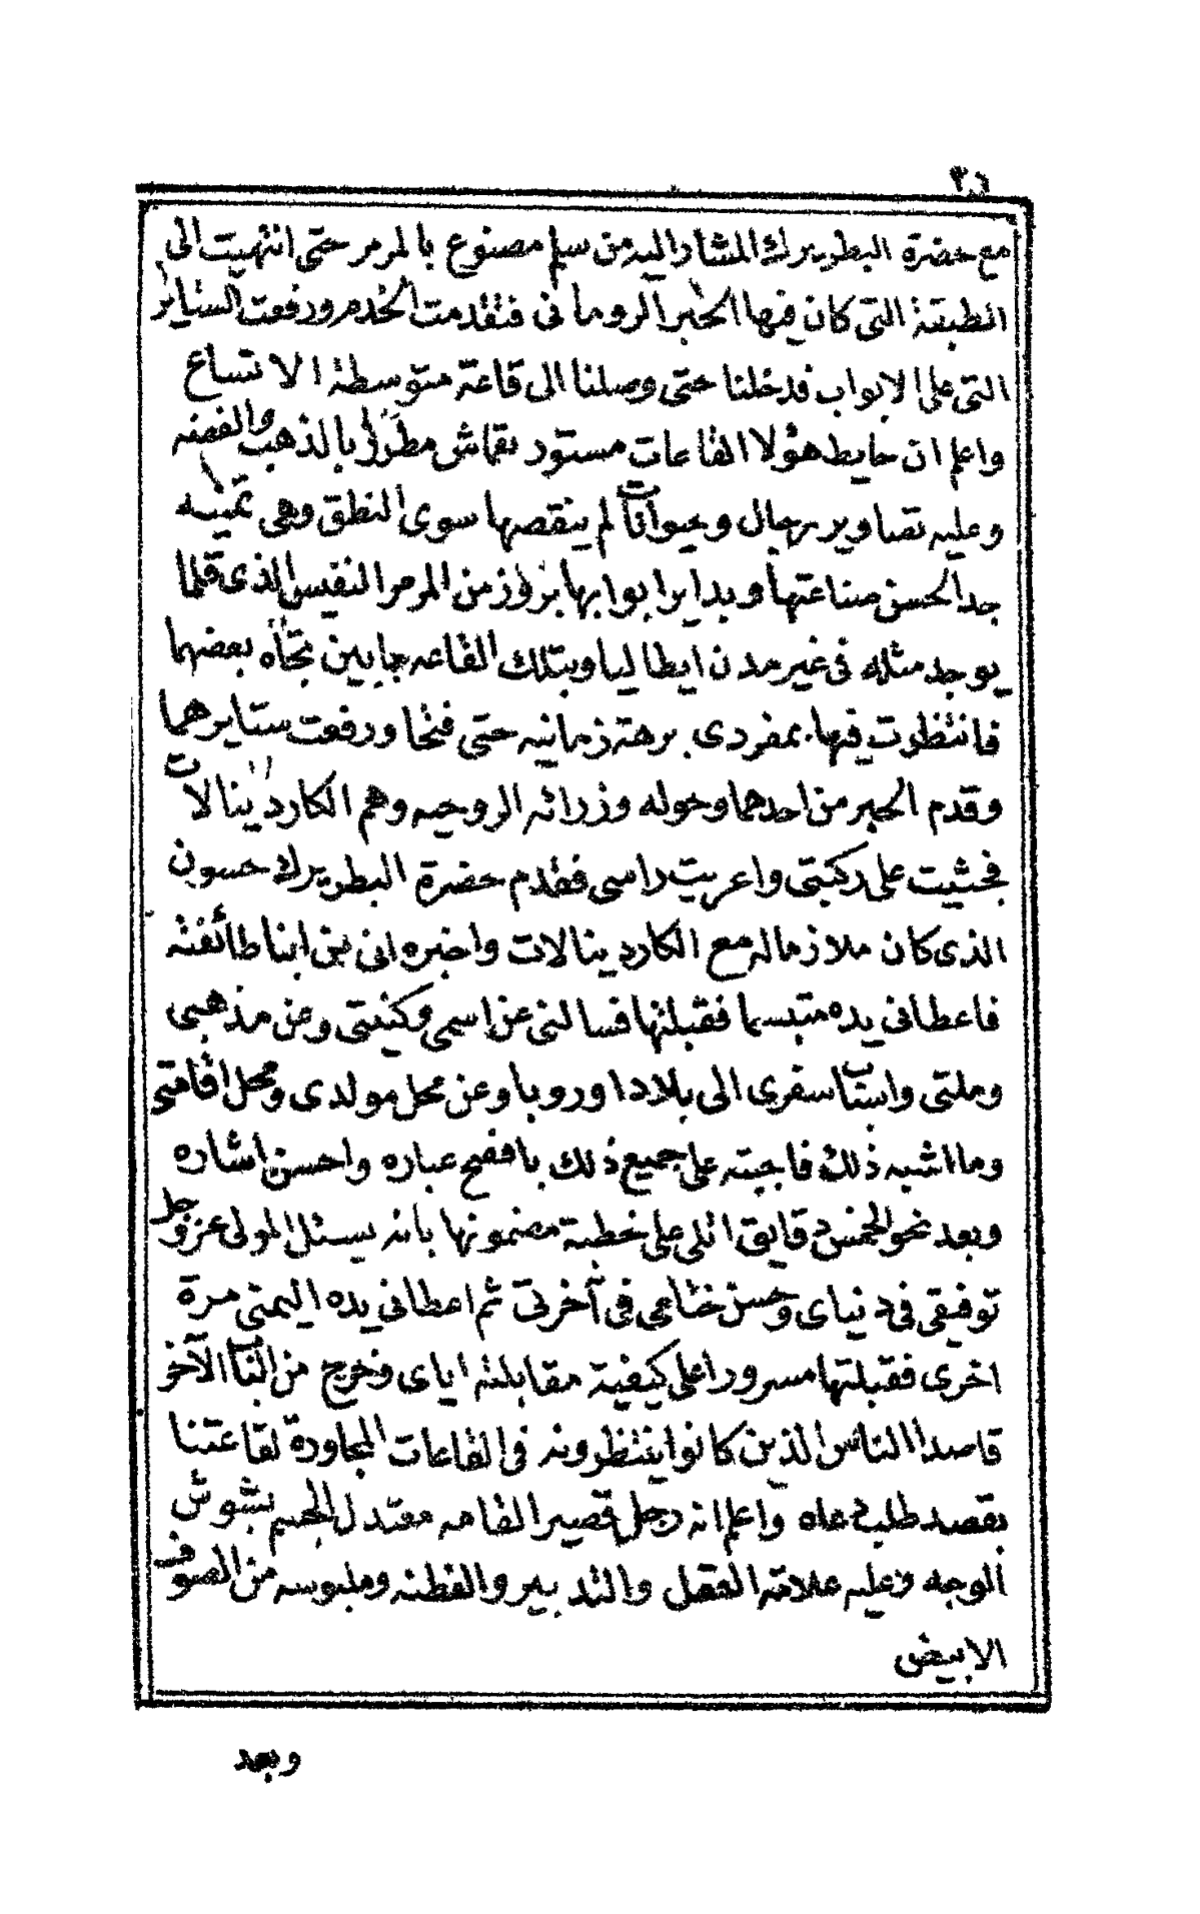 ٣٦
مع حضرة البطريرك المشار اليه من سلم مصنوع بالمرمر حتى انتهيت الى
الطبقة التي كان فيها الحبر الروماني فتقدمت الخدم ورفعت الستاير
التي على الابواب فدخلنا حتى وصلنا الى قاعة متوسطة الاتساع
واعلم ان حايط هؤلا القاعات مستور بقماش مطرز بالذهب والفضه
وعليه تصاوير رجال وحيوانات لم ينقصها سوى النطق وهي ثمينه
جدا لحسن صناعتها وبداير ابوابها برواز من المرمر النفيس الذى قلما
يوجد مثله في غير مدن ايطاليا وبتلك القاعه بابين تجاه بعضهما
فانتظرت فيها بمفردى برهة زمانيه حتى فتحا ورفعت ستايرهما
وقدم الحبر من احدهما وحوله وزرائه الروحيه وهم الكاردينالات
فجثيت على ركبتي واعريت راسي فقدم حضرة البطريرك حسون
الذى كان ملازما له مع الكاردينالات واخبره اني من ابنا طائفته
فاعطاني يده متبسما فقبلتها فسالني عن اسمي وكنيتي وعن مذهبي
وملتي واسباب سفرى الى بلاد اوروبا وعن محل مولدى ومحل اقامتي
وما اشبه ذلك فاجبته على جميع ذلك بافصح عباره واحسن اشاره
وبعد نحو الخمس دقايق اتلى علي خطبة مضمونها بانه يسئل المولى عز وجل
توفيقي في دنياى وحسن ختامي في آخرتي ثم اعطاني يده اليمنى مرة
اخرى فقبلتها مسرورا على كيفية مقابلته اياى وخرج من الباب الآخر
قاصدا الناس الذين كانوا ينتظرونه في القاعات المجاورة لقاعتنا
بقصد طلب دعاه واعلم انه رجل قصير القامه معتدل الجسم بشوش
الوجه وعليه علامة العقل والتدبير والفطنه وملبوسه من الصوف
الابيض
وبعد